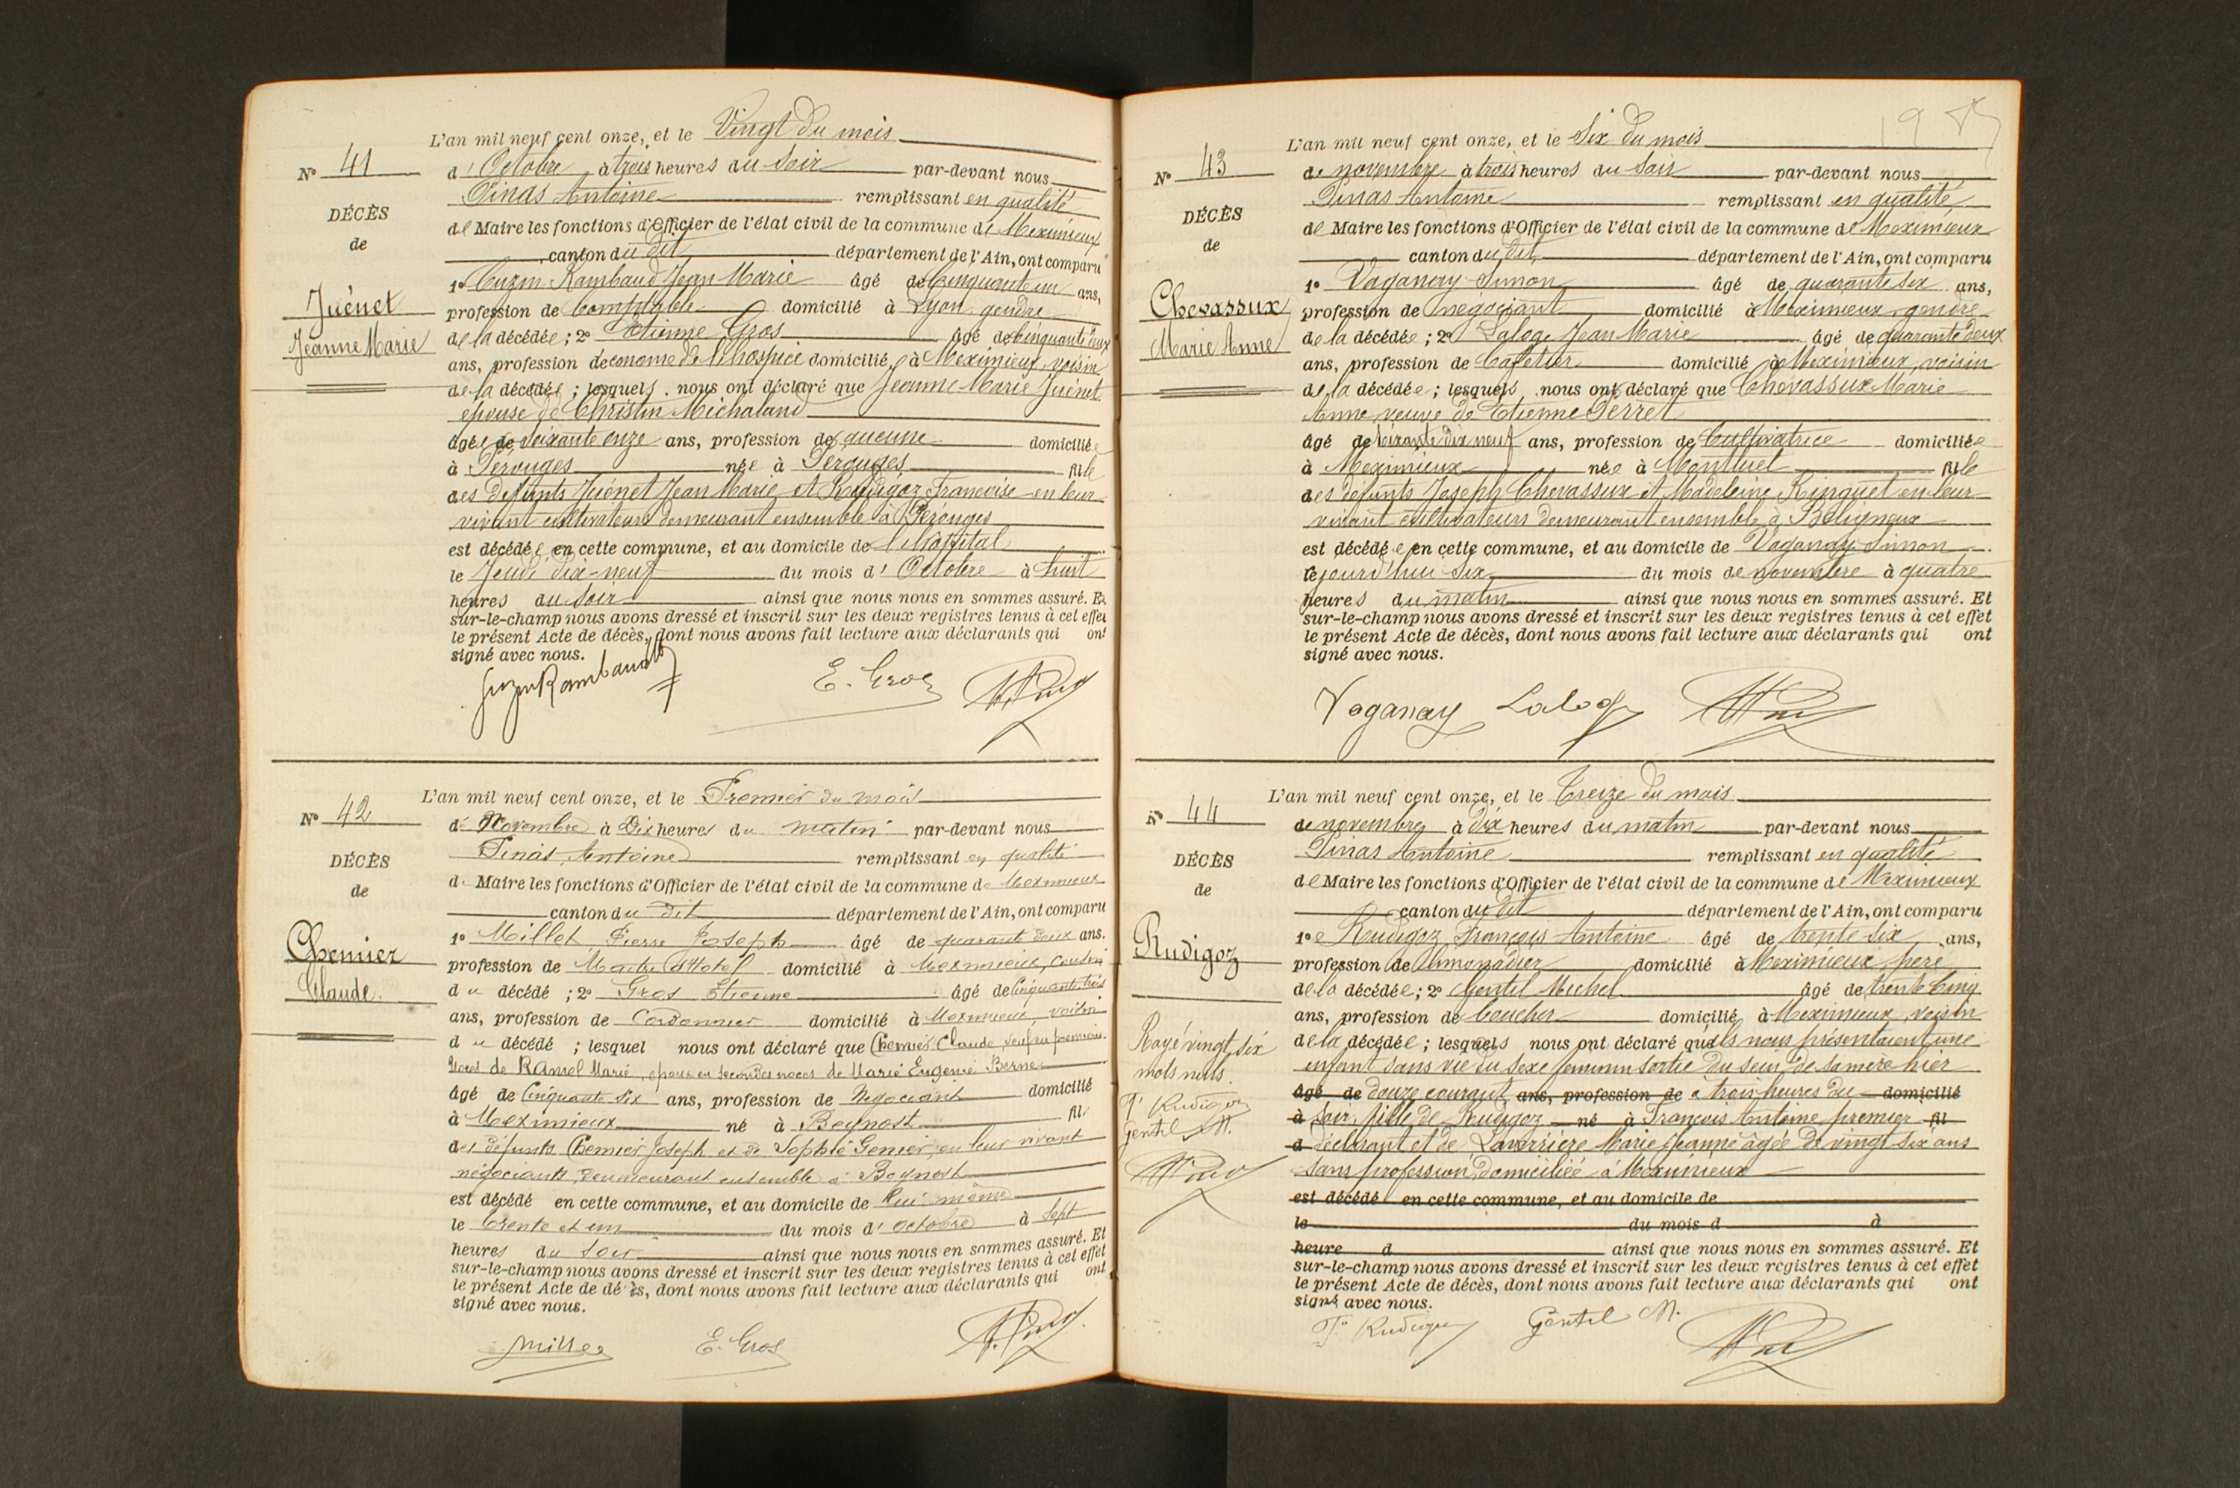 L'an mil neuf cent onze, et le Vingt du mois
N° 41
d'Octobre à trois heures du Soir par-devant nous
Pinas Antoine remplissant en qualité
DÉCÈS
de Maire les fonctions d'Officier de l'état civil de la commune de Meximieux
de
canton du dit département de l'Ain, ont comparu
1° Cuzin Rambaud Jean Marie âgé de Cinquante un ans,
Juénet
profession de Comptable domicilié à Lyon gendre
Jeanne Marie
de la décédée ; 2° Etienne Gros âgé de Cinquante deux
ans, profession d'econome de l'hospice domicilié à Meximieux voisin
de la décédée ; lesquels nous ont déclaré que Jeanne Marie Juénet
épouse de Christin Michaland
âgée de soixante onze ans, profession de aucune domiciliée
à Perouges née à Perouges fille
des defunts Juénet Jean Marie et Rudigoz Francoise en leur
vivant cultivateurs demeurant ensemble à Pérouges
est décédée en cette commune, et au domicile de l'Hopital
le Jeudi dix-neuf du mois d'Octobre à huit
heures du soir ainsi que nous nous en sommes assuré. Et
sur-le-champ nous avons dressé et inscrit sur les deux registres tenus à cet effet
le présent Acte de décès, dont nous avons fait lecture aux déclarants qui ont
signé avec nous.
Cuzin Rambaud E. Gros
L'an mil neuf cent onze, et le Premier du mois
N° 42
de Novembre à Dix heures du matin par-devant nous
Pinas Antoine remplissant en qualité
DÉCÈS
de Maire les fonctions d'Officier de l'état civil de la commune de Meximieux
de
canton du dit département de l'Ain, ont comparu
1° Millet Pierre Joseph âgé de quarante deux ans.
Chemier
profession de Maitre d'Hotel domicilié à Meximieux, cousin
Claude.
du décédé ; 2° Gros Etienne âgé de Cinquante trois
ans, profession de Cordonnier domicilié à Meximieux voisin
du décédé ; lesquel nous ont déclaré que Chemier Claude, veuf en premières
noces de Ransel Marie, epoux en secondes noces de Marie Eugenie Berne
âgé de Cinquante Six ans, profession de Négociant domicilié
à Meximieux né à Beynost fil
des défunts Chemier Joseph et de Sophie Genier, en leur vivant
négociants, demeurant ensemble à Beynost
est décédé en cette commune, et au domicile de lui même
le trente et un du mois d'octobre à sept
heures du Soir ainsi que nous nous en sommes assuré. Et
sur-le-champ nous avons dressé et inscrit sur les deux registres tenus à cet effet
le présent Acte de décès, dont nous avons fait lecture aux déclarants qui ont
signé avec nous.
E. Gros
L'an mil neuf cent onze, et le Six du mois
N° 43
de novembre à trois heures du Soir par-devant nous
Pinas Antoine remplissant en qualité
DÉCÈS
de Maire les fonctions d'Officier de l'état civil de la commune de Meximieux
de
canton du dit département de l'Ain, ont comparu
1° Vaganay Simon âgé de quarante six ans,
Chevassux
profession de négociant domicilié à Meximieux, gendre
Marie Anne
de la décédée ; 2° Laloge Jean Marie âgé de quarante deux
ans, profession de Cafetier domicilié à Meximieux, voisin
de la décédée ; lesquels nous ont déclaré que Chevassux Marie
Anne veuve de Etienne Perret
âgé de soixante dix neuf ans, profession de Cultivatrice domiciliée
à Meximieux née à Montluel fille
des défunts Joseph Chevassux et Madeleine Ringuet en leur
vivant cultivateurs demeurant ensemble à Béligneux
est décédée en cette commune, et au domicile de Vaganay Simon
le jourd'hui Six du mois de novembre à quatre
heures du matin ainsi que nous nous en sommes assuré. Et
sur-le-champ nous avons dressé et inscrit sur les deux registres tenus à cet effet
le présent Acte de décès, dont nous avons fait lecture aux déclarants qui ont
signé avec nous.
Vaganay Laloge
L'an mil neuf cent onze, et le Treize du mois
N° 44
de novembre à dix heures du matin par-devant nous
Pinas Antoine remplissant en qualité
DÉCÈS
de Maire les fonctions d'Officier de l'état civil de la commune de Meximieux
de
canton du dit département de l'Ain, ont comparu
1° Rudigoz François Antoine âgé de trente six ans,
Rudigoz
profession de limonadier domicilié à Meximieux père
de la décédée ; 2° Gentil Michel âgé de trente cinq
ans, profession de boucher domicilié à Meximieux, voisin
Rayé vingt six
mots nuls.
F. Rudigoz
Gentil M.
de la décédée ; lesquels nous ont déclaré qu'ils nous présentaient une
enfant sans vie du sexe féminin sortie du sein de sa mère hier
âgé de douze courant, ans, profession de à trois heures du domicilié
à soir, fille de Rudigoz né à François Antoine premier fil
d déclarant et de Laverrière Marie Jeanne âgée de vingt six ans
sans profession domiciliée à Meximieux
est décédé en cette commune, et au domicile de
le du mois d à
heure d ainsi que nous nous en sommes assuré. Et
sur-le-champ nous avons dressé et inscrit sur les deux registres tenus à cet effet
le présent Acte de décès, dont nous avons fait lecture aux déclarants qui ont
signé avec nous.
F. Rudigoz Gentil M.